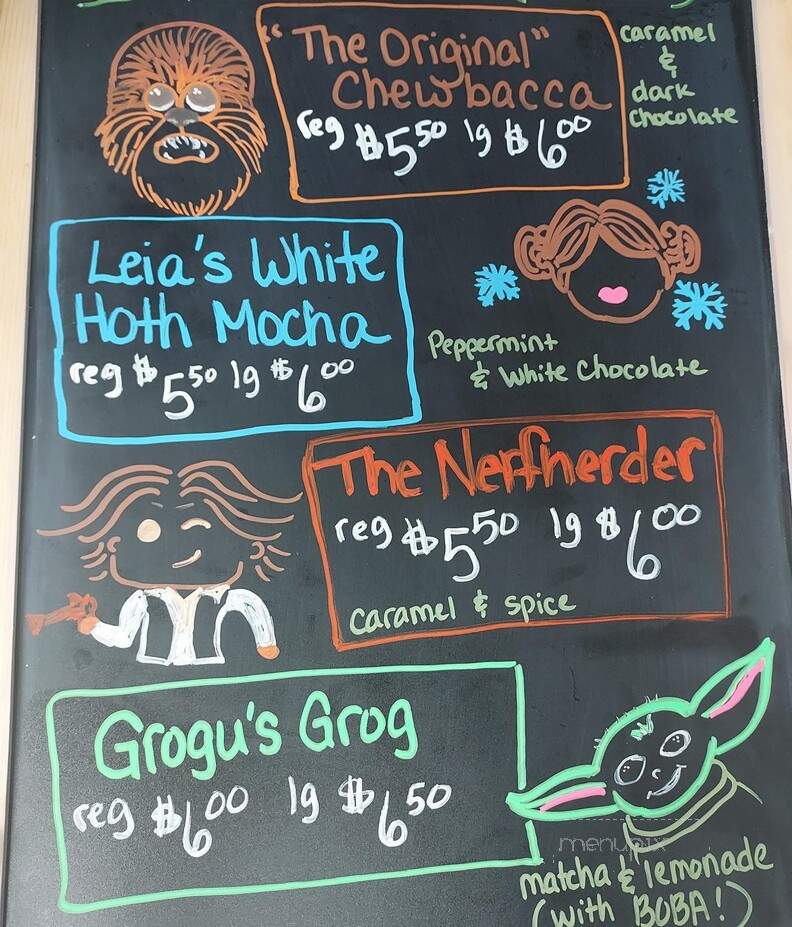 "The Original"
Chewbacca
reg $5.50 lg $6.00
caramel
&
dark
chocolate
Leia's White
Hoth Mocha
reg $5.50 lg $6.00
Peppermint
& White Chocolate
The Nerfherder
reg $5.50 lg $6.00
caramel & spice
Grogu's Grog
reg $6.00 lg $6.50
menupix
matcha & lemonade
(with BOBA!)